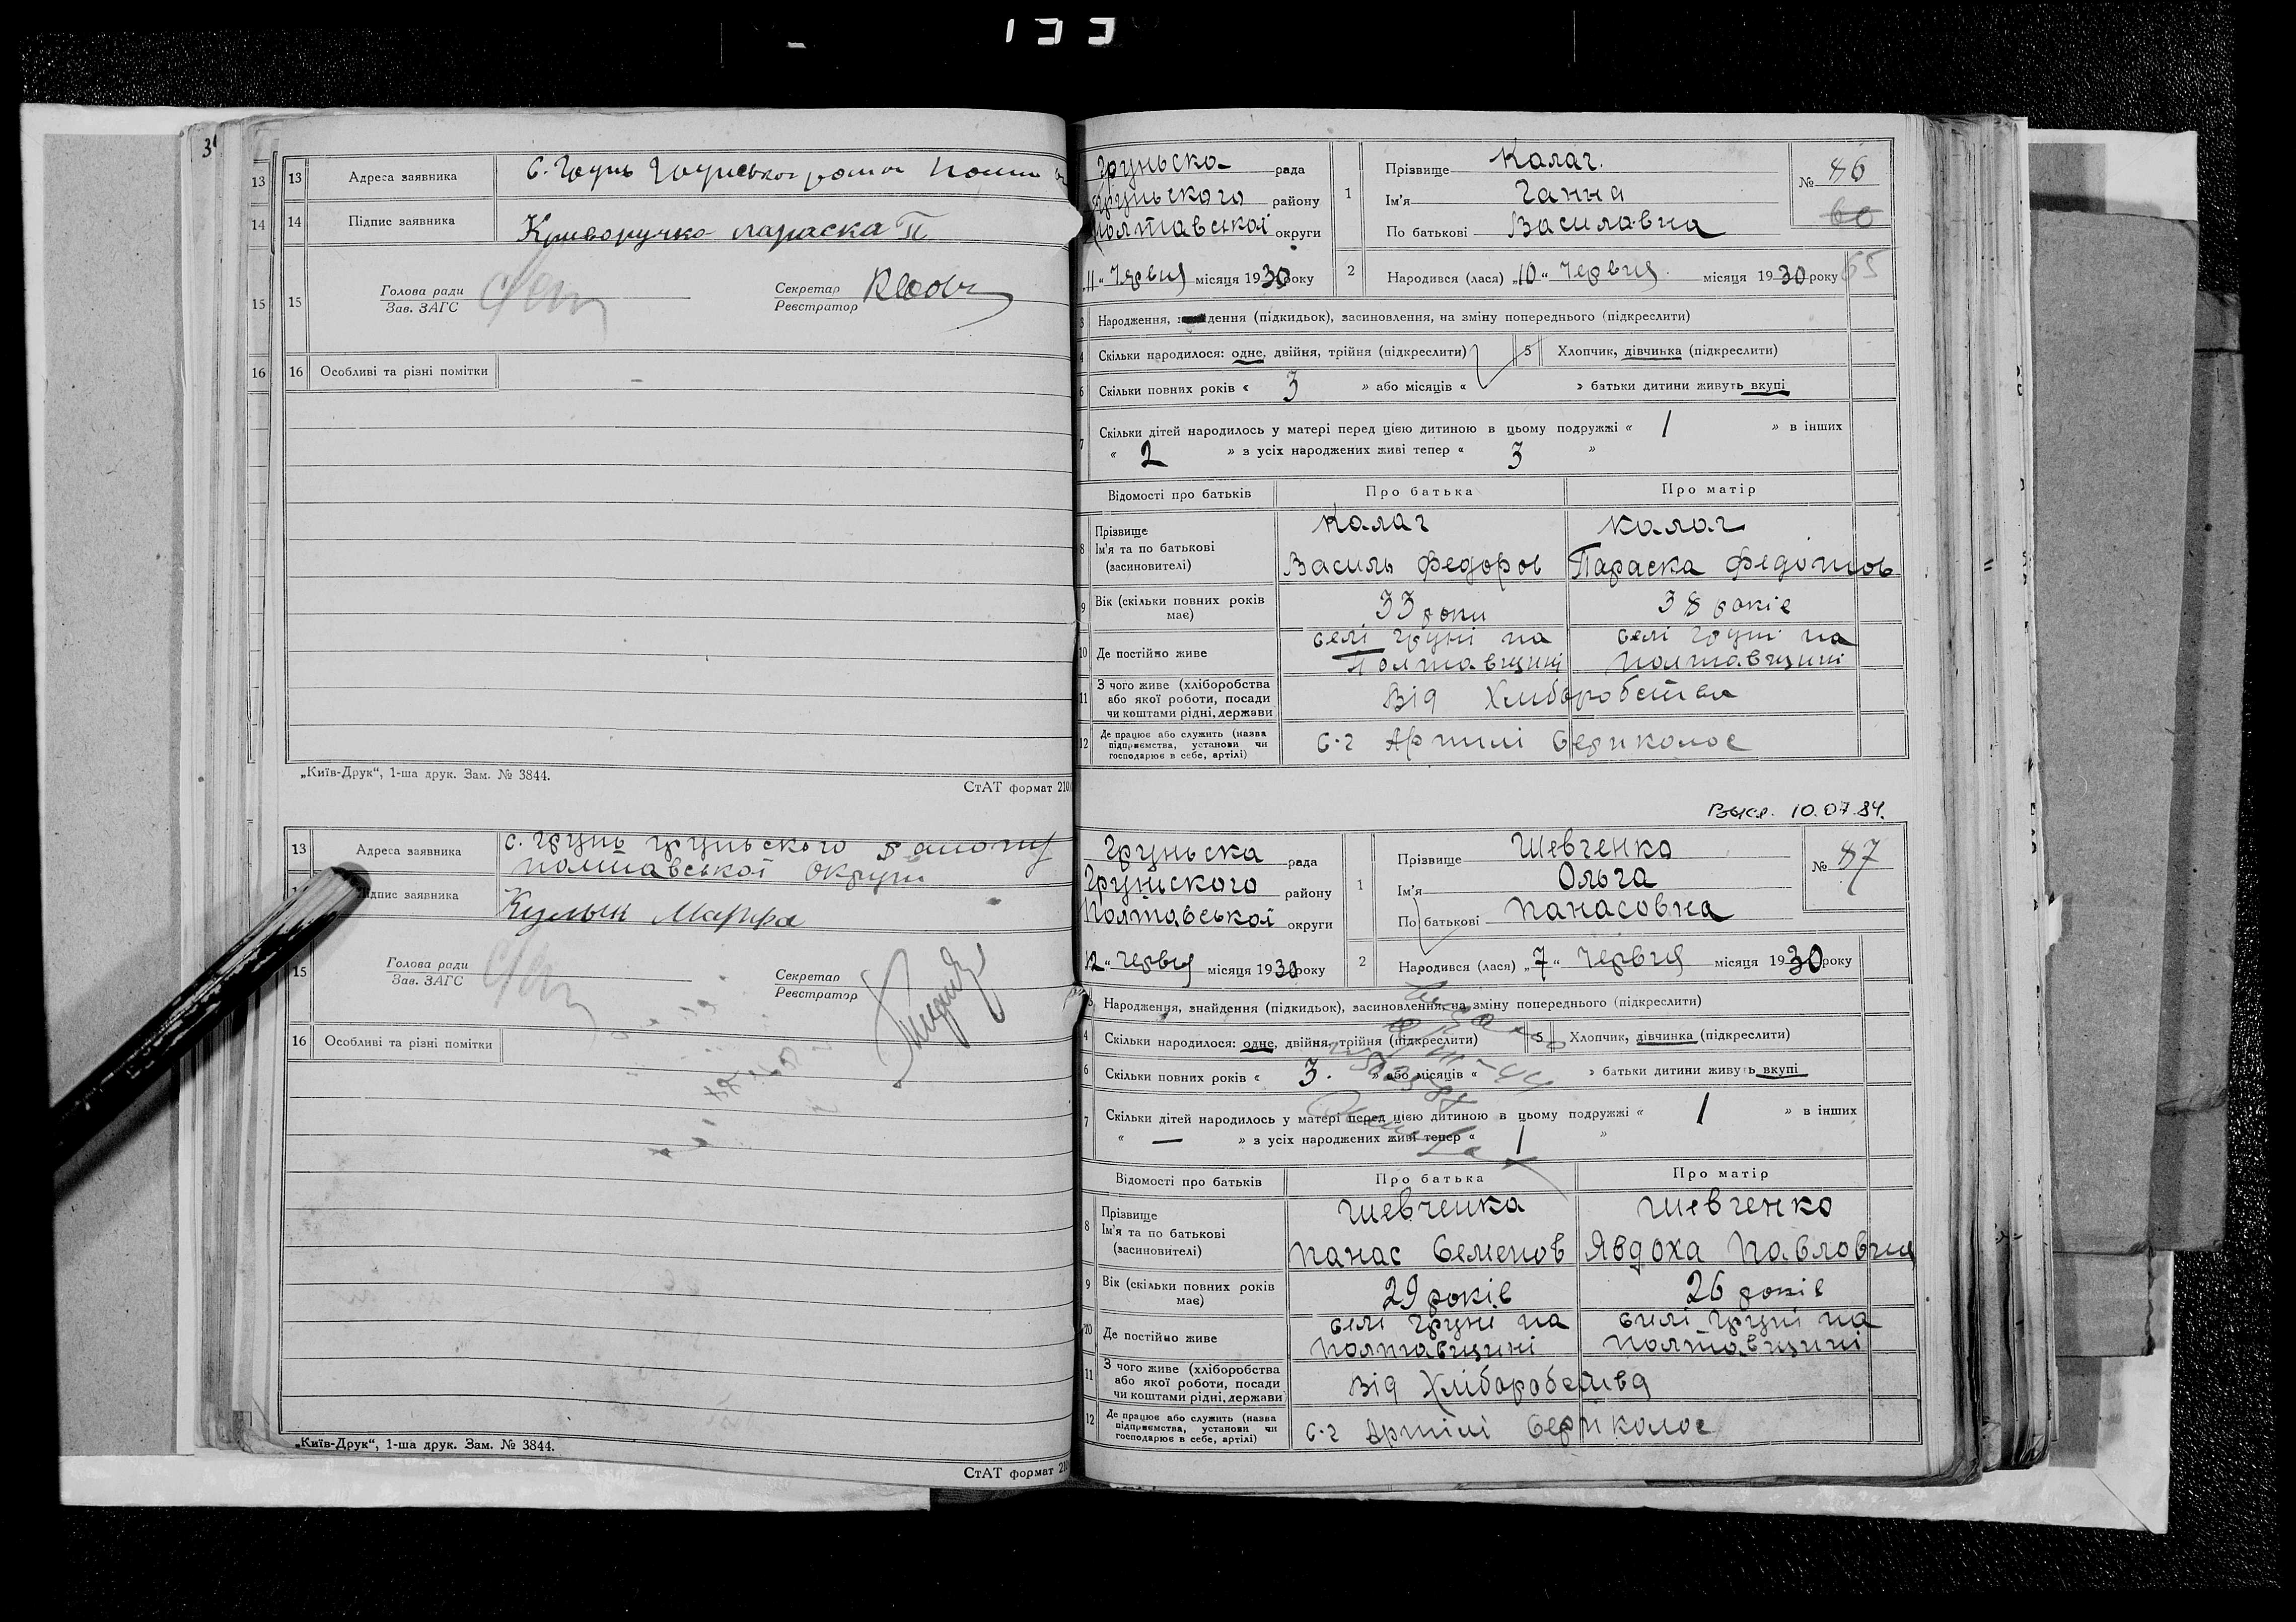 133
3
13 13 Адреса заявника с. Грунь
14 14 Підпис заявника Криворучко Параска П
15 15 Голова ради
Зав. ЗАГС
Секретар
Реєстратор
16 16 Особливі та різні помітки
„Київ-Друк“, 1-ша друк. Зам. № 3844.
СтАТ формат 210
13 Адреса заявника с. Грунь Груньського району
полтавської округи
Підпис заявника Кулык Марфа
15 Голова ради
Зав. ЗАГС
Секретар
Реєстратор
16 Особливі та різні помітки
„Київ-Друк“, 1-ша друк. Зам. № 3844.
СтАТ формат 210
Груньска рада
Груньского району
Полтавської округи
„11“ Червня місяця 1930 року
1 Прізвище Калач.
Ім'я Ганна
По батькові Василавна
№ 86
60
65
2 Народився (лася) „10“ Червня місяця 1930 року
3 Народження, знайдення (підкидьок), засиновлення, на зміну попереднього (підкреслити)
4 Скільки народилося: одне, двійня, трійня (підкреслити) 5 Хлопчик, дівчинка (підкреслити)
6 Скільки повних років « 3 » або місяців « » батьки дитини живуть вкупі
7 Скільки дітей народилось у матері перед цією дитиною в цьому подружжі « 1 » в інших
« 2 » з усіх народжених живі тепер « 3 »
Відомості про батьків Про батька Про матір
8 Прізвище Калач Калач
Ім'я та по батькові
(засиновителі) Василь Федоров Параска Федотов
9 Вік (скільки повних років має) 33 роки 38 років
10 Де постійно живе селі Груні на Полтавщині селі Груні на Полтавщині
11 З чого живе (хліборобства
або якої роботи, посади
чи коштами рідні, держави Від Хлиборобства
12 Де працює або служить (назва
підприємства, установи чи
господарює в себе, артілі) с-г Артилі Серпиколос
Высл. 10.07.84.
Груньска рада
Груньского району
Полтавської округи
„12“ червня місяця 1930 року
1 Прізвище Шевченко
Ім'я Ольга
По батькові Панасовна
№ 87
2 Народився (лася) „7“ Червня місяця 1930 року
Народження, знайдення (підкидьок), засиновлення, на зміну попереднього (підкреслити)
4 Скільки народилося: одне, двійня, трійня (підкреслити) 5 Хлопчик, дівчинка (підкреслити)
6 Скільки повних років « 3. » або місяців « » батьки дитини живуть вкупі
7 Скільки дітей народилось у матері перед цією дитиною в цьому подружжі « 1 » в інших
« — » з усіх народжених живі тепер « 1 »
Відомості про батьків Про батька Про матір
8 Прізвище Шевченка Шевченко
Ім'я та по батькові
(засиновителі) Панас Семенов Явдоха Павловня
9 Вік (скільки повних років має) 29 років 26 років
10 Де постійно живе селі Груні на Полтавщині силі Груні на Полтавщині
11 З чого живе (хліборобства
або якої роботи, посади
чи коштами рідні, держави Від Хліборобства
12 Де працює або служить (назва
підприємства, установи чи
господарює в себе, артілі) с-г Артілі Серпиколос